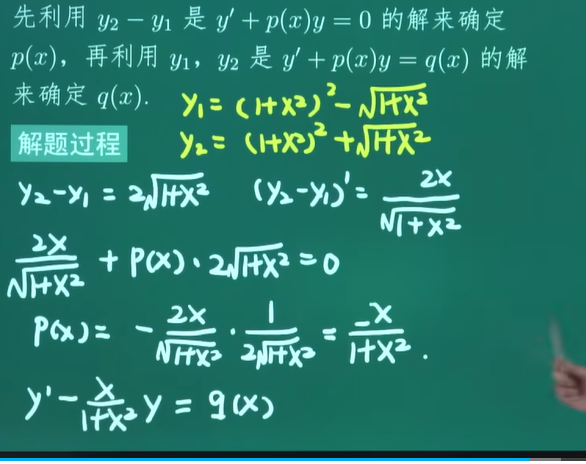 先利用 y₂ − y₁ 是 y′ + p(x)y = 0 的解来确定
p(x)，再利用 y₁，y₂ 是 y′ + p(x)y = q(x) 的解
来确定 q(x).
y₁ = (1+x²)² − √(1+x²)
y₂ = (1+x²)² + √(1+x²)
解题过程
y₂ − y₁ = 2√(1+x²) (y₂ − y₁)′ = 2x/√(1+x²)
2x/√(1+x²) + P(x)·2√(1+x²) = 0
P(x) = − 2x/√(1+x²) · 1/(2√(1+x²)) = −x/(1+x²).
y′ − x/(1+x²) y = q(x)